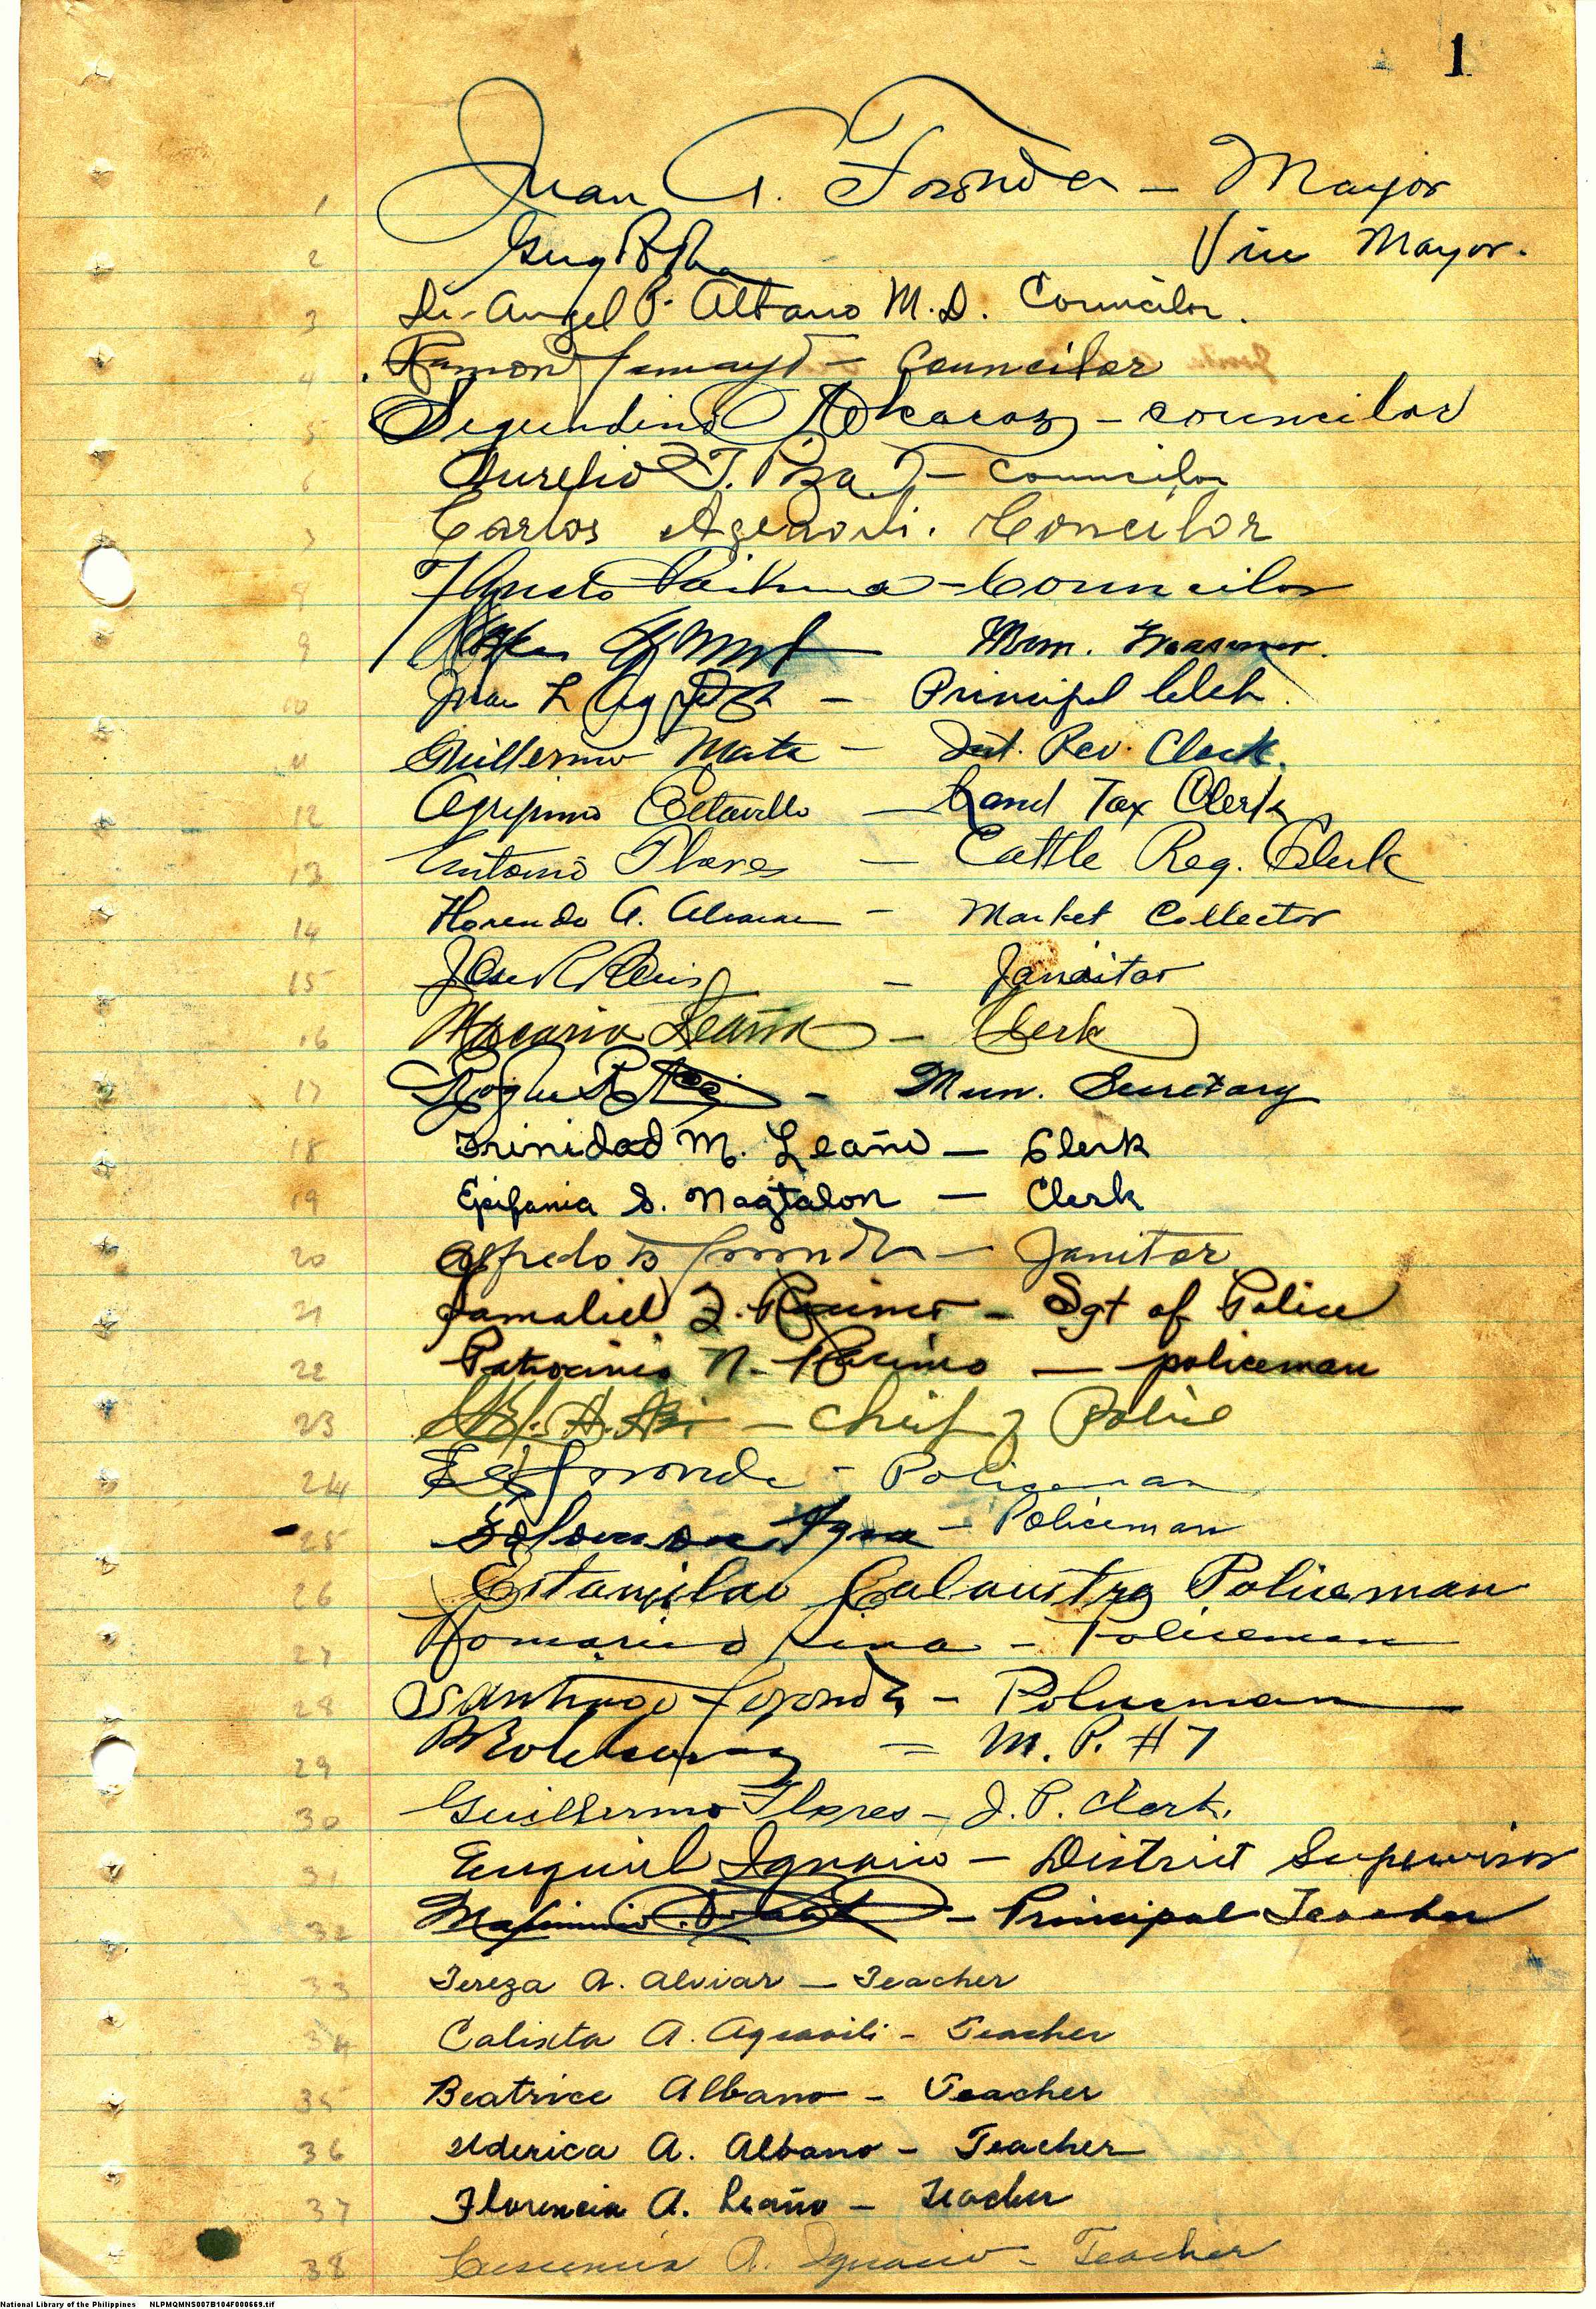 1
1 Juan A. Foronda - Mayor
2 Vice Mayor.
3 Dr. Angel P. Albano M.D. Councilor.
4 Ramon - Councilor
5 Segundino Alcaraz - councilor
6 Aurelio T. - Councilor
7 Carlos Agcaoili. Concilor
8 - Councilor
9 Mun. Treasurer.
10 Juan L - Principal Clerk.
11 Guillermo Mata - Int. Rev. Clerk.
12 Agripino - Land Tax Clerk
13 Antonio Flores - Cattle Reg. Clerk
14 Florendo A. - Market Collector
15 - Janaitor
16 Macario Leaño - Clerk
17 - Mun. Secretary
18 Trinidad M. Leaño - Clerk
19 Epifania S. Nagtalon - Clerk
20 Alfredo Foronda - Janitor
21 Gamaliel Z. Racimo - Sgt of Police
22 Patrocinio N. Racimo - policeman
23 - Chief of Police
24 Foronda - Policeman
25 Solomon - Policeman
26 Estanislao Calaustro Policeman
27 Romarico Lina - Policeman
28 Santiago Foronda - Policeman
29 = M.P. #7
30 Guillermo Flores - J.P. Clerk.
31 Ezequiel Ignacio - District Supervisor
32 Maximino - Principal Teacher
33 Tereza A. Alviar - Teacher
34 Calixta A. Agcaoili - Teacher
35 Beatrice Albano - Teacher
36 Uderica A. Albano - Teacher
37 Florencia A. Leaño - Teacher
38 A. Ignacio - Teacher
National Library of the Philippines NLPMQMNS007B104F000669.tif